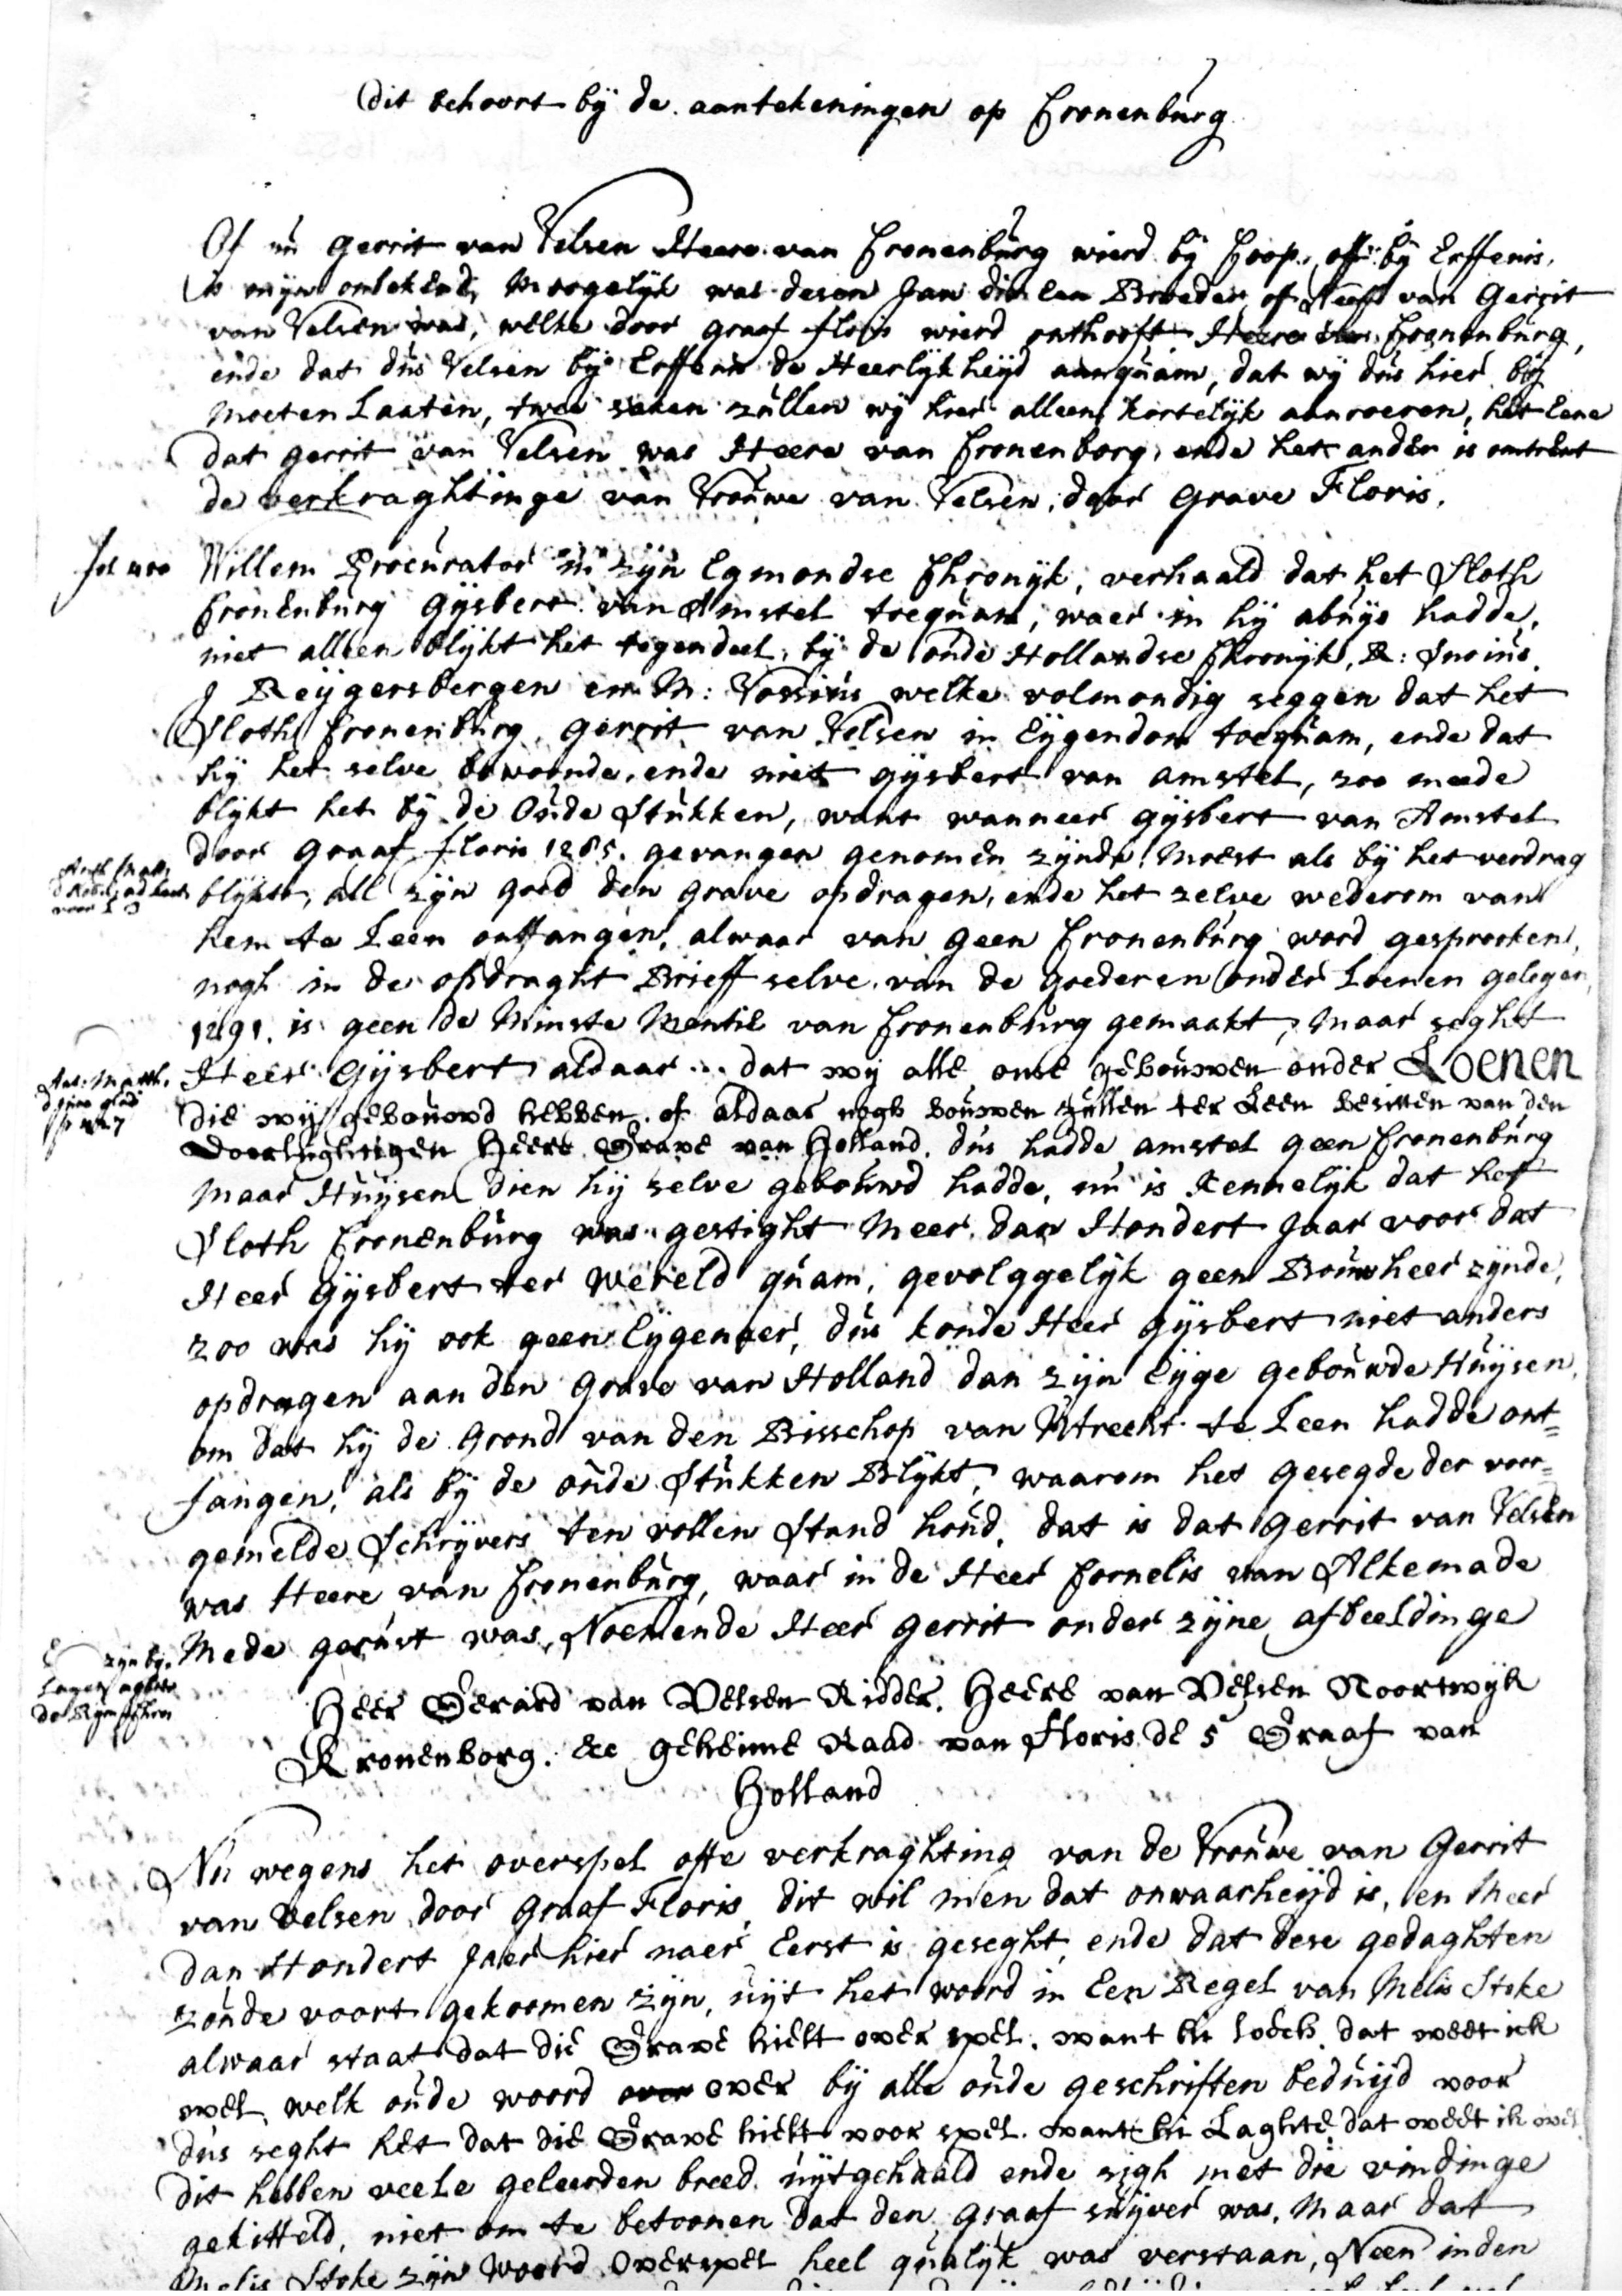 Dit behoort bÿ de aantekeningen op Cronenburg
Of nu gerrit van Velsen Heere van Cronenburg wierd bÿ Coop, offe bÿ Erffenis,
is mÿn onbekend, Moogelÿk was desen Jan die een Broeder of Neeff van Gerrit
van Velsen was, welke door graaf floris wierd onthooft Heere van Cronenburg,
ende dat dus Velsen bÿ Erffenis de Heerlÿkheÿd aanquam, dat wÿ dus hier bÿ
Moeten Laaten, twee saken zullen wÿ hier alleen kortelÿk aanroeren, het Eene
dat gerrit van Velsen was Heere van Cronenborg, ende het ander is omtrent
de verkraghtinge van Vrouwe van Velsen, door Grave Floris.
fol 400
Willem Procurator in zÿn Egmondse Chronÿk, verhaald dat het Sloth
Cronenburg Gÿsbert van Amstel toequam, waer in hÿ abuÿs hadde,
niet alleen blÿkt het tegendeel, bÿ de oude Hollandse Chronÿk, R: Snoius,
J Reÿgersbergen en M: Vossius welke volmondig seggen dat het
Sloth Cronenburg, gerrit van Velsen in Eÿgendom toequam, ende dat
hÿ het selve bewoonde, ende niet gÿsbert van amstel, zoo meede
blÿkt het bÿ de Oude Stukken, want wanneer gÿsbert van Amstel
door Graaf floris 1285. gevangen genomen zÿnde, Moest als bÿ het verdrag
Anth Matt.
blÿkt, all zÿn goed den grave opdragen, ende het zelve wederom van
hem te Leen ontfangen, alwaar van geen Cronenburg word gesprooken,
nogh in de opdraght Brieff selve van de goederen onder Loenen gelegen,
1291. is geen de Minste Mentie van Cronenburg gemaakt, maar seght
Ant: Matth.
Heer Gÿsbert aldaar ... dat wÿ alle onse gebouwen onder Loenen
die wÿ gebouwd hebben of aldaar nogh bouwen zullen ter Leen besitten van den
Doorlughtigen Heere Grave van Holland. dus hadde amstel geen Cronenburg
maar Huÿsen dien hÿ zelve gebouwd hadde, nu is Kennelÿk dat het
Sloth Cronenburg was gestight Meer dan Hondert Jaar voor dat
Heer Gÿsbert ter wereld quam, gevolggelÿk geen Bouwheer zÿnde,
zoo was hÿ ook geen Eÿgenaer, dus konde Heer gÿsbert niet anders
opdragen aan den Grave van Holland dan zÿn Eÿge gebouwde Huÿsen,
om dat hÿ de Grond van den Bisschop van Utrecht te Leen hadde ont=
fangen, als bÿ de oude Stukken Blÿkt, waarom het gesegde der voor=
gemelde Schrÿvers ten vollen Stand houd, dat is dat Gerrit van Velsen
was Heere van Cronenburg, waar in de Heer Cornelis van Alkemade
Mede gerust was, Noemende Heer Gerrit onder zÿne afbeeldinge
zÿn bÿ
Heer Gerard van Velsen Ridder, Heere van Velsen Noortwÿk
Kronenborg. &c geheime Raad van Floris de 5 Graaf van
Holland
Nu wegens het overspel ofte verkraghting van de Vrouwe van Gerrit
van Velsen door Graaf Floris, dit wil men dat onwaarheÿd is, en Meer
dan Hondert Jaer hier naer Eerst is geseght, ende dat dese gedaghten
zoude voort gekoomen zÿn, uÿt het woord in Een Regel van Melis Stoke
alwaar staat dat die Grave hielt over spel. want hi loech dat weet ick
wel, welk oude woord over over bÿ alle oude geschriften beduÿd voor
dus seght het dat die Grave hielt voor spel. want hi Laghte dat weet ik wel
dit hebben veele geleerden breed uÿtgehaald ende sigh met die vindinge
gekitteld, niet om te betoonen dat den graaf suÿver was, Maar dat
Melis Stoke zÿn woord Overspel heel qualÿk was verstaan, Neen inden